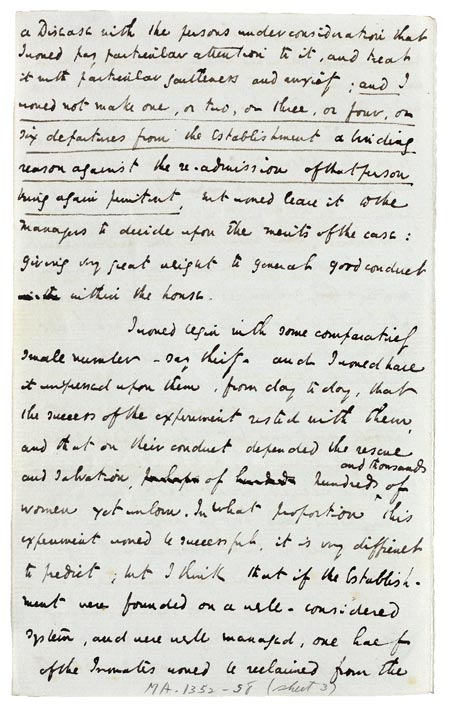 a Disease with the persons under consideration that
I would pay particular attention to it, and treat
it with particular gentleness and anxiety; and I
would not make one, or two, or three, or four, or
six departures from the Establishment a binding
reason against the re-admission of that person
being again penitent, but would leave it to the
managers to decide upon the merits of the case:
giving very great weight to general good conduct
within the house.
I would begin with some comparatively
small number - say thirty - and I would have
it impressed upon them, from day to day, that
the success of the experiment rested with them,
and that on their conduct depended the rescue
and salvation, perhaps of hundreds hundreds and thousands of
women yet unborn. In what proportion this
experiment would be successful, it is very difficult
to predict; but I think that if the Establish-
ment were founded on a well-considered
system, and were well managed, one half
of the Inmates would be reclaimed from the
MA-1352-58 (sheet 3)